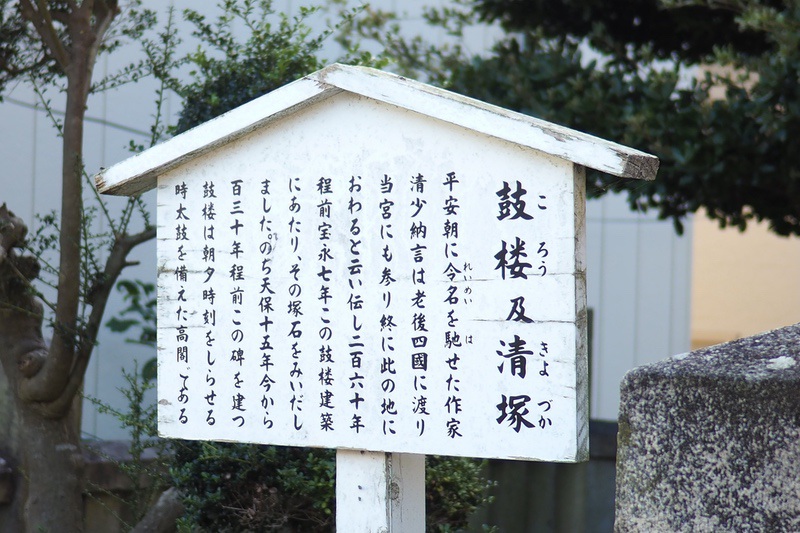 鼓楼及清塚
ころう きよづか
平安朝に令名を馳せた作家
れいめい は
清少納言は老後四國に渡り
当宮にも参り終に此の地に
おわると云い伝し二百六十年
程前宝永七年この鼓楼建築
にあたり、その塚石をみいだし
ました。のち天保十五年今から
百三十年程前この碑を建つ
鼓楼は朝夕時刻をしらせる
時太鼓を備えた高閣である